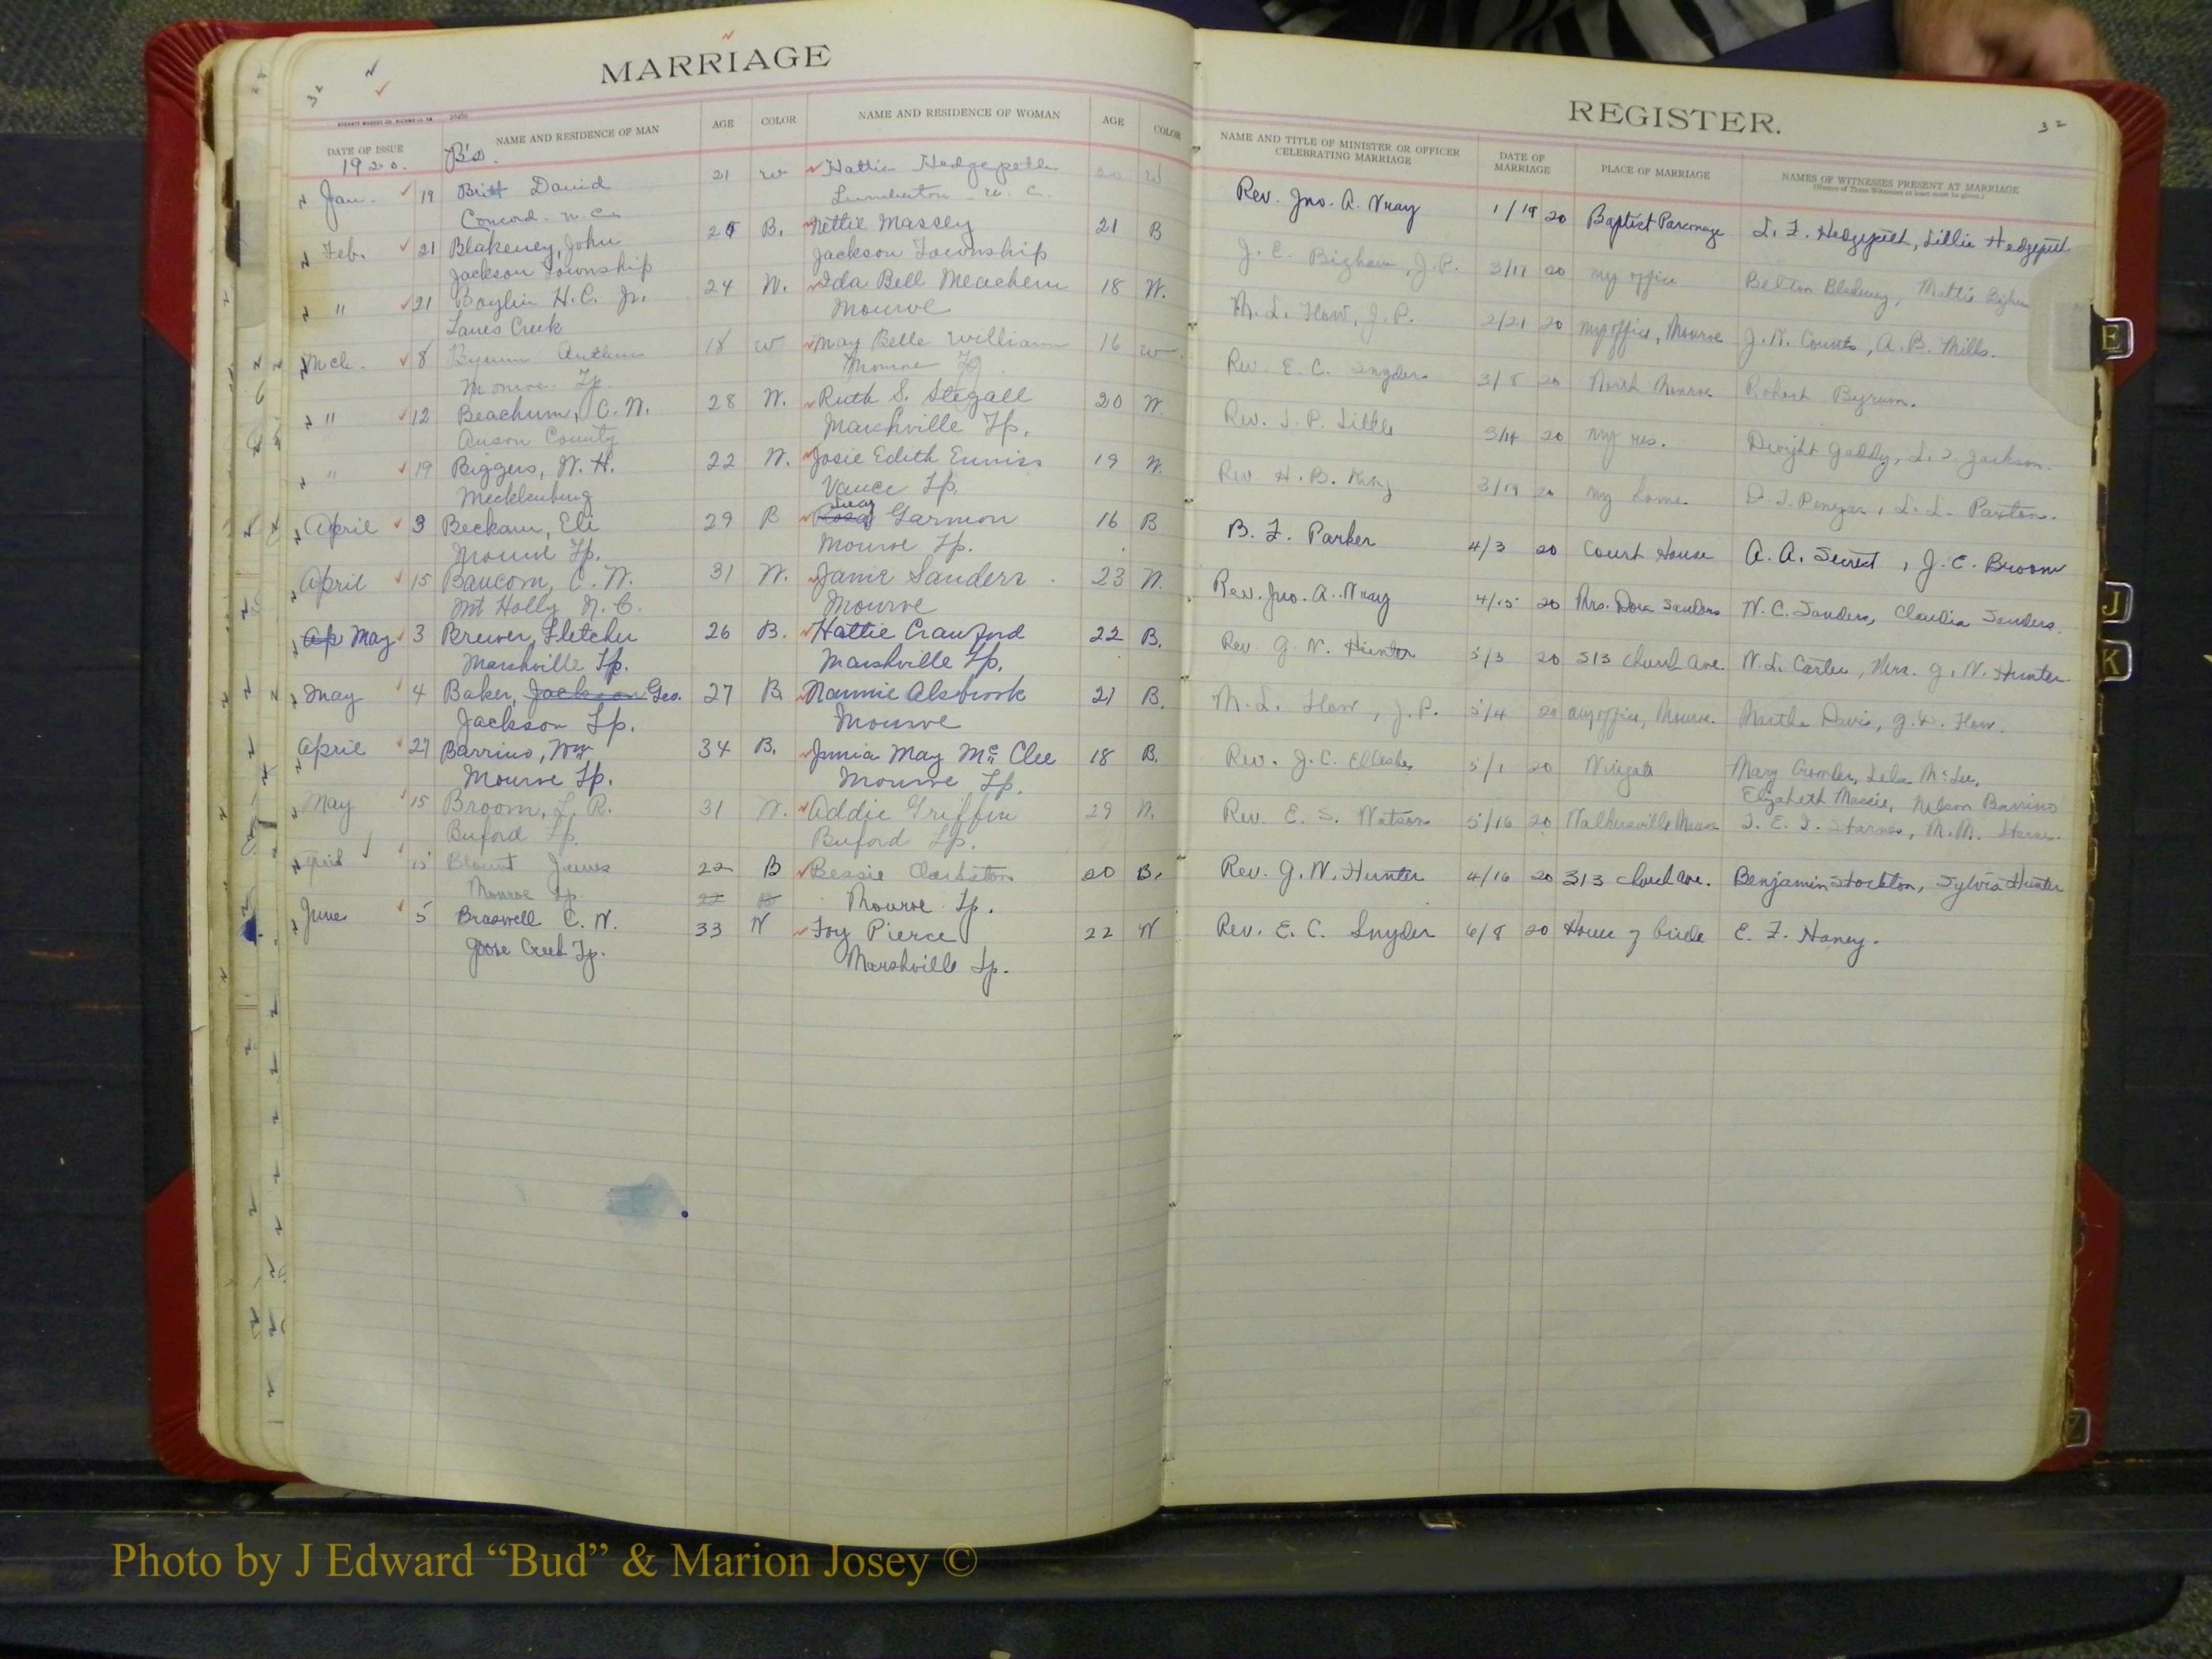 32
MARRIAGE
DATE OF ISSUE NAME AND RESIDENCE OF MAN AGE COLOR NAME AND RESIDENCE OF WOMAN AGE COLOR
1920. B's.
Jan. 19 Britt David 21 W Hattie Hedgepeth 20 W
Concord. N.C. Lumberton N. C.
Feb. 21 Blakeney, John B. Nettie Massey 21 B
Jackson Township Jackson Township
" 21 Baylin H.C. Jr. 24 W. Ida Bell Meachem 18 W.
Lanes Creek Monroe
Mch. 8 Byrum Arthur 18 W May Belle William 16 W.
Monroe Tp. Monroe Tp.
" 12 Beachum, C. W. 28 W. Ruth S. Stegall 20 W.
Anson County Marshville Tp.
" 19 Biggers, W. H. 22 W. Josie Edith Enniss 19 W.
Mecklenburg Vance Tp.
April 3 Beckam, Eli 29 B Garmon 16 B
Monroe Tp. Monroe Tp.
April 15 Baucom, C. W. 31 W. Janie Sanders. 23 W.
Mt Holly N. C. Monroe
Ap May 3 Brewer, Fletcher 26 B. Hattie Crawford 22 B.
Marshville Tp. Marshville Tp.
May 4 Baker, Jackson Geo. 27 B Nannie Alsbrook 21 B.
Jackson Tp. Monroe
April 27 Barrino, Wm 34 B. Junia May Mc Clee 18 B.
Monroe Tp. Monroe Tp.
May 15 Broom, L. R. 31 W. Addie Griffin 29 W.
Buford Tp. Buford Tp.
April 15 Blount James 22 B Bessie Clarkston 20 B.
Monroe Tp 22 B Monroe Tp.
June 5 Braswell C. W. 33 W Foy Pierce 22 W
Goose Creek Tp. Marshville Tp.
REGISTER. 32
NAME AND TITLE OF MINISTER OR OFFICER CELEBRATING MARRIAGE DATE OF MARRIAGE PLACE OF MARRIAGE NAMES OF WITNESSES PRESENT AT MARRIAGE
(Names of Three Witnesses at least must be given.)
Rev. Jno. A. Wray 1/19 20 Baptist Parsonage L. F. Hedgepeth, Lillie Hedgepeth
J. E. Bigham, J.P. 3/11 20 my office Belton Blakeney, Mattie Bigham
M. L. Flow, J.P. 2/21 20 my office, Monroe J. K. Counts, A. B. Mills.
Rev. E. C. Snyder 3/8 20 North Monroe Robert Byrum.
Rev. J. P. Little 3/14 20 my res. Dwight Gaddy, L. J. Jackson.
Rev H. B. King 3/19 20 my home. D. J. Penegar, L. L. Paxton.
B. F. Parker 4/3 20 Court House A. A. Secrest, J. C. Broom
Rev. Jno. A. Wray 4/15 20 Mrs. Dora Sanders W. C. Sanders, Claudia Sanders.
Rev. G. W. Hunter 5/3 20 513 Church Ave. W. L. Carter, Mrs. G. W. Hunter.
M. L. Flow, J.P. 5/4 20 my office, Monroe. Martha Davis, G. W. Flow.
Rev. J. C. 5/1 20 Wingate Mary Crowder, Lela McLee,
Elizabeth Massie, Nelson Barrino
Rev. E. S. Watson 5/16 20 Walkersville Manse J. E. J. Starnes, M. M. Starnes.
Rev. G. W. Hunter 4/16 20 313 Church Ave. Benjamin Stockton, Sylvia Hunter
Rev. E. C. Snyder 6/8 20 House of bride E. F. Haney.
E
J
K
Z
Photo by J Edward “Bud” & Marion Josey ©